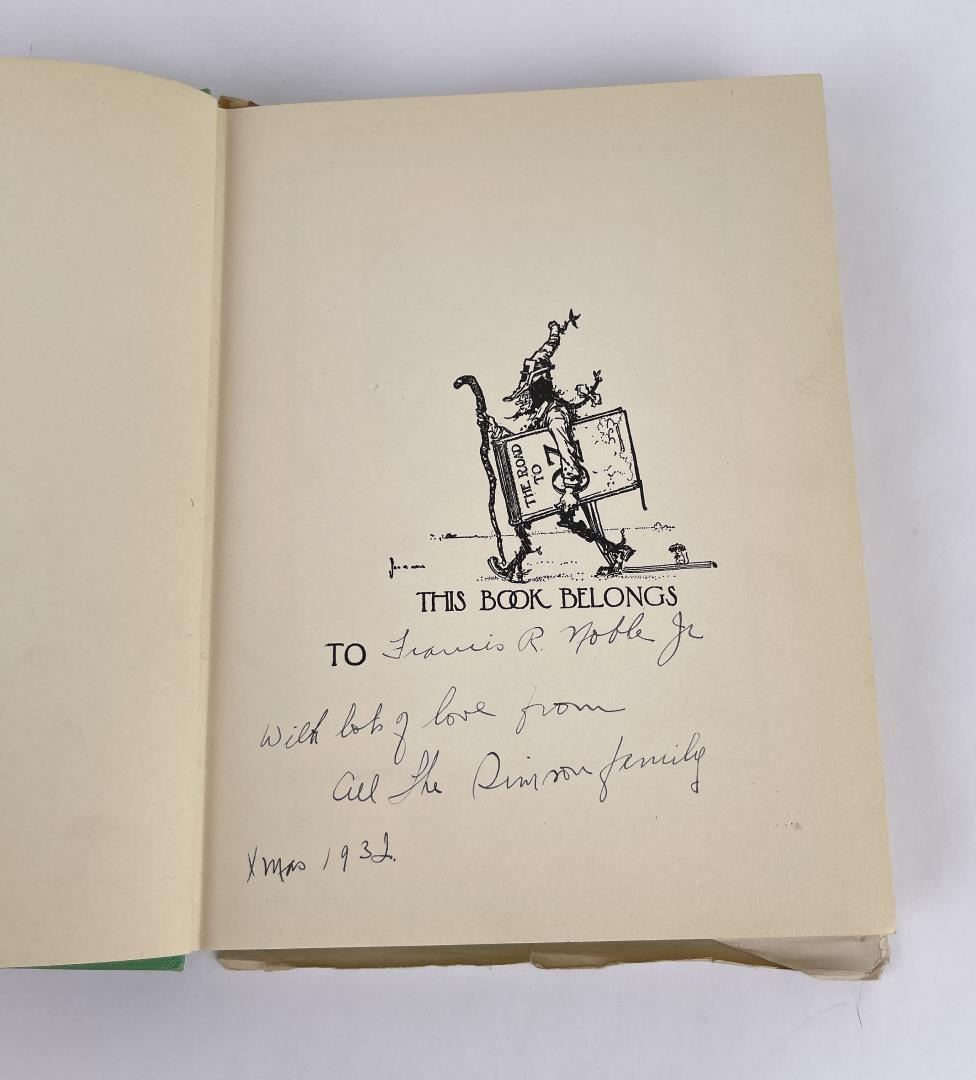 THE ROAD
TO
OZ
THIS BOOK BELONGS
TO Francis R. Noble Jr
With lots of love from
All The Simson family
Xmas 1932.